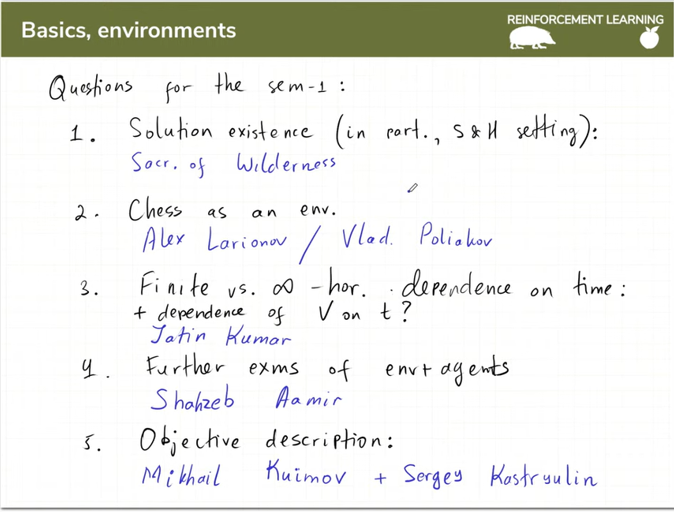 Basics, environments
REINFORCEMENT LEARNING
Questions for the sem-1:
1. Solution existence (in part., S&H setting):
Socr. of Wilderness
2. Chess as an env.
Alex Larionov / Vlad. Poliakov
3. Finite vs. ∞-hor. · dependence on time:
+ dependence of V on t?
Jatin Kumar
4. Further exms of env+agents
Shahzeb Aamir
5. Objective description:
Mikhail Kuimov + Sergey Kastryulin